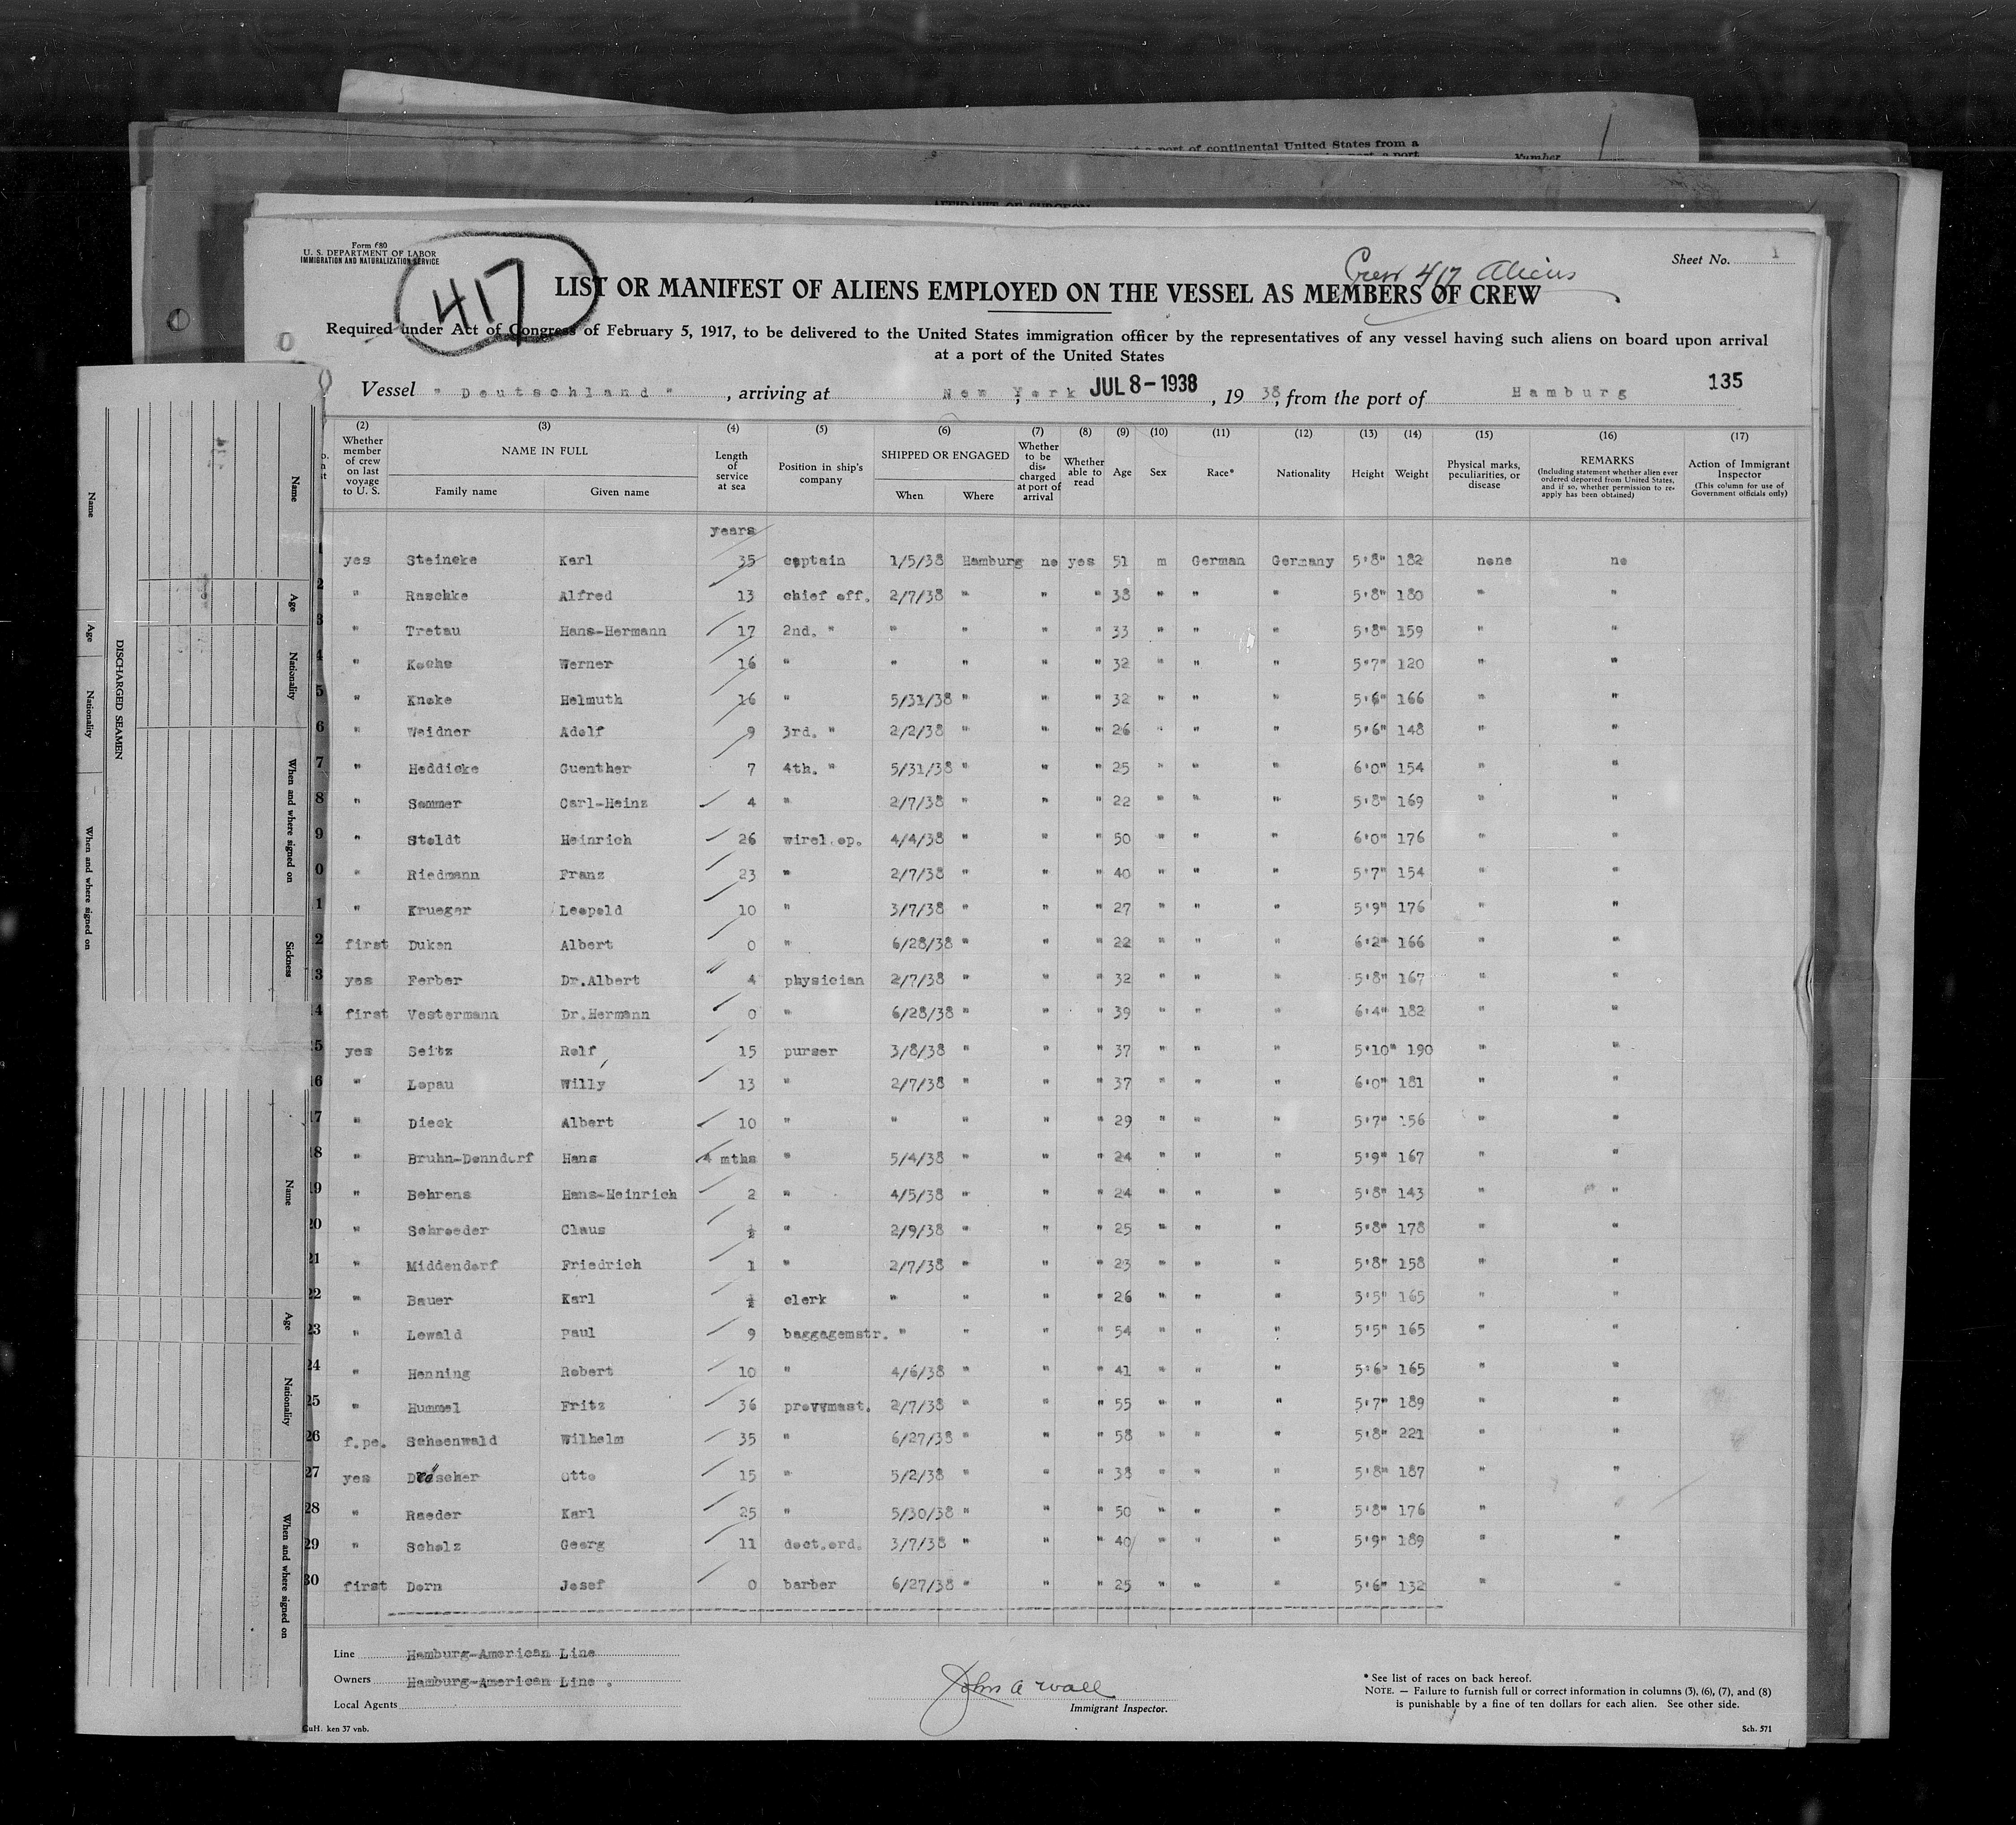 a port of continental United States from a
Number
AFFIDAVIT OF SURGEON
Form 680
U. S. DEPARTMENT OF LABOR
IMMIGRATION AND NATURALIZATION SERVICE
417
Crew 417 Aliens
Sheet No. 1
LIST OR MANIFEST OF ALIENS EMPLOYED ON THE VESSEL AS MEMBERS OF CREW
Required under Act of Congress of February 5, 1917, to be delivered to the United States immigration officer by the representatives of any vessel having such aliens on board upon arrival
at a port of the United States
135
Vessel "Deutschland", arriving at New York JUL 8-1938, 1938, from the port of Hamburg
(2) (3) (4) (5) (6) (7) (8) (9) (10) (11) (12) (13) (14) (15) (16) (17)
Whether member of crew on last voyage to U. S. NAME IN FULL Family name Given name Length of service at sea Position in ship's company SHIPPED OR ENGAGED When Where Whether to be discharged at port of arrival Whether able to read Age Sex Race* Nationality Height Weight Physical marks, peculiarities, or disease REMARKS (Including statement whether alien ever ordered deported from United States, and if so, whether permission to re-apply has been obtained) Action of Immigrant Inspector (This column for use of Government officials only)
years
1 yes Steincke Karl 35 captain 1/5/38 Hamburg no yes 51 m German Germany 5'8" 182 none no
2 " Raschke Alfred 13 chief off. 2/7/38 " " " 38 " " " 5'8" 180 " "
3 " Tretau Hans-Hermann 17 2nd. " " " " " 33 " " " 5'8" 159 " "
4 " Kochs Werner 16 " " " " " 32 " " " 5'7" 120 " "
5 " Knoke Helmuth 16 " 5/31/38 " " " 32 " " " 5'6" 166 " "
6 " Weidner Adolf 9 3rd. " 2/2/38 " " " 26 " " " 5'6" 148 " "
7 " Heddicke Guenther 7 4th. " 5/31/38 " " " 25 " " " 6'0" 154 " "
8 " Sommer Carl-Heinz 4 " 2/7/38 " " " 22 " " " 5'8" 169 " "
9 " Stoldt Heinrich 26 wirel.op. 4/4/38 " " " 50 " " " 6'0" 176 " "
0 " Riedmann Franz 23 " 2/7/38 " " " 40 " " " 5'7" 154 " "
1 " Krueger Leopold 10 " 3/7/38 " " " 27 " " " 5'9" 176 " "
2 first Duken Albert 0 " 6/28/38 " " " 22 " " " 6'2" 166 " "
3 yes Ferber Dr.Albert 4 physician 2/7/38 " " " 32 " " " 5'8" 167 " "
4 first Vestermann Dr.Hermann 0 " 6/28/38 " " " 39 " " " 6'4" 182 " "
5 yes Seitz Rolf 15 purser 3/8/38 " " " 37 " " " 5'10" 190 " "
16 " Lopau Willy 13 " 2/7/38 " " " 37 " " " 6'0" 181 " "
17 " Dieck Albert 10 " " " " " 29 " " " 5'7" 156 " "
18 " Bruhn-Denndorf Hans 4 mths " 5/4/38 " " " 24 " " " 5'9" 167 " "
19 " Behrens Hans-Heinrich 2 " 4/5/38 " " " 24 " " " 5'8" 143 " "
20 " Schroeder Claus ½ " 2/9/38 " " " 25 " " " 5'8" 178 " "
21 " Middendorf Friedrich 1 " 2/7/38 " " " 23 " " " 5'8" 158 " "
22 " Bauer Karl ½ clerk " " " " 26 " " " 5'5" 165 " "
23 " Lowald Paul 9 baggagemstr. " " " " 54 " " " 5'5" 165 " "
24 " Henning Robert 10 " 4/6/38 " " " 41 " " " 5'6" 165 " "
25 " Hummel Fritz 36 provvmast. 2/7/38 " " " 55 " " " 5'7" 189 " "
26 f.pe. Schoenwald Wilhelm 35 " 6/27/38 " " " 58 " " " 5'8" 221 " "
27 yes Dröscher Otto 15 " 5/2/38 " " " 38 " " " 5'8" 187 " "
28 " Raeder Karl 25 " 5/30/38 " " " 50 " " " 5'8" 176 " "
29 " Scholz Georg 11 doct.ord. 3/7/38 " " " 40 " " " 5'9" 189 " "
30 first Dorn Josef 0 barber 6/27/38 " " " 25 " " " 5'6" 132 " "
Line Hamburg-American Line
Owners Hamburg-American Line .
Local Agents
John A Wall
Immigrant Inspector.
* See list of races on back hereof.
NOTE. — Failure to furnish full or correct information in columns (3), (6), (7), and (8)
is punishable by a fine of ten dollars for each alien. See other side.
CuH. ken 37 vnb.
Sch. 571
DISCHARGED SEAMEN
Name
Age
Nationality
When and where signed on
Name
Age
Nationality
When and where signed on
Sickness
Name
Age
Nationality
When and where signed on